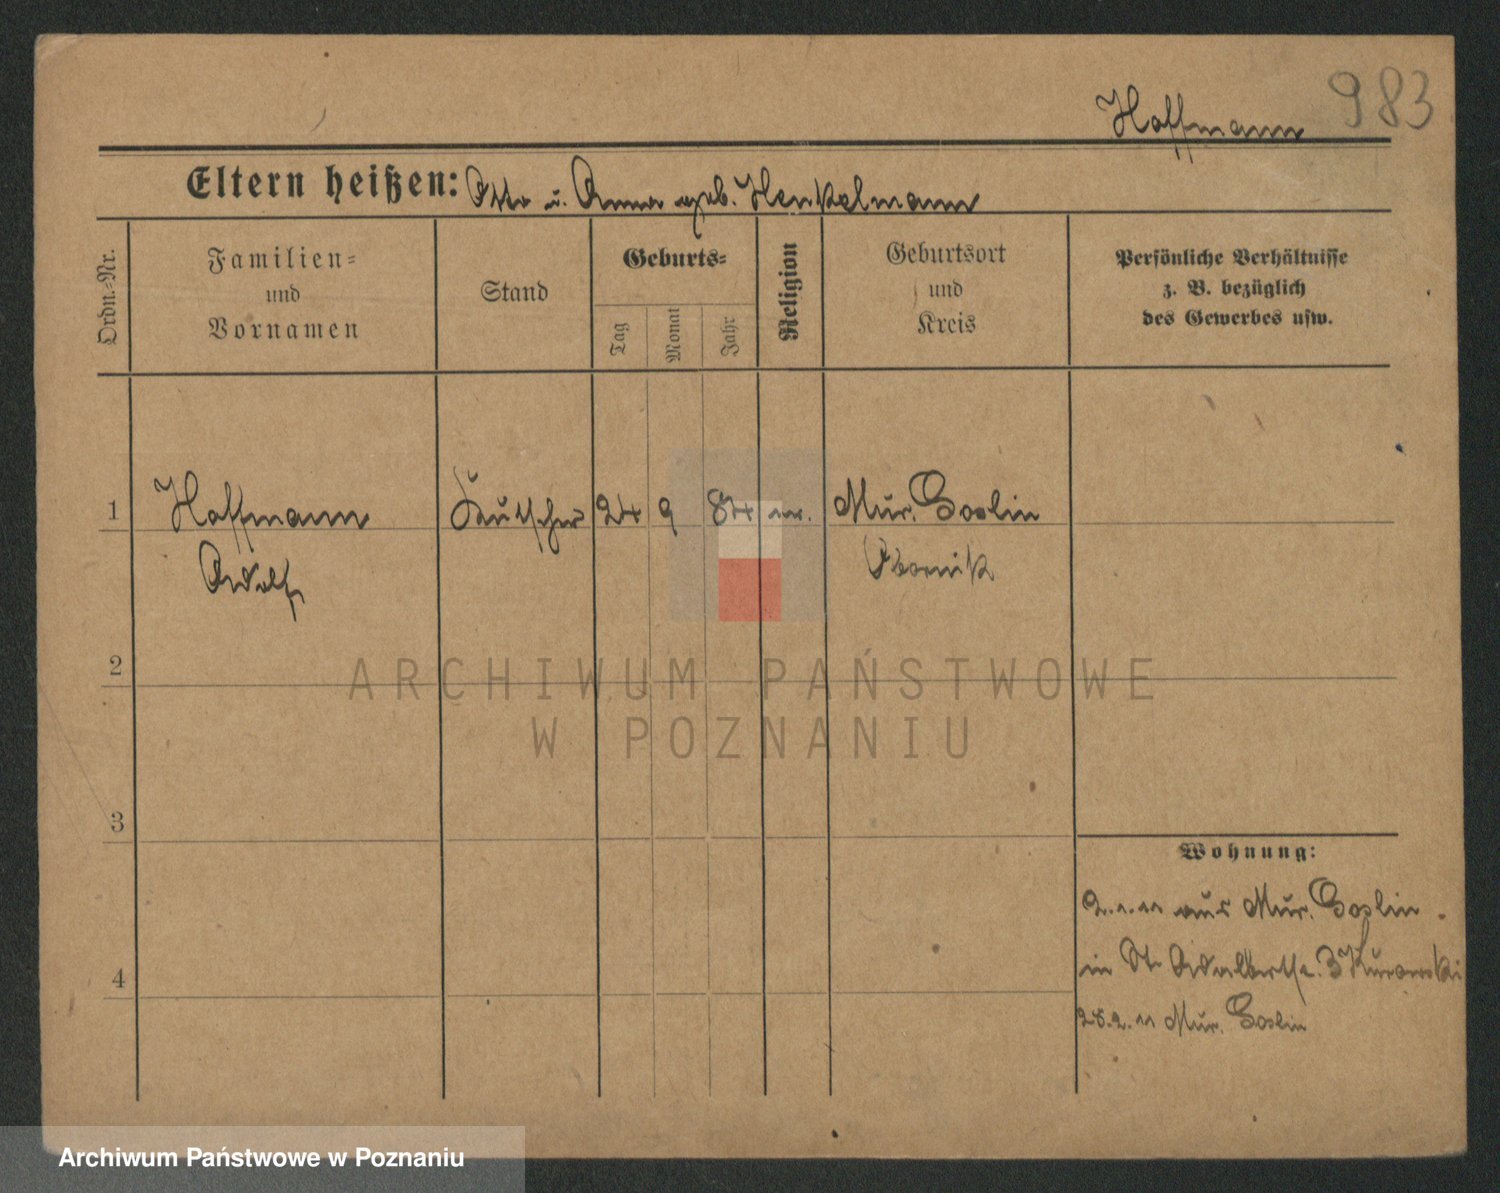 983
Hoffmann
Eltern heißen: Otto u. Anna geb. Henkelmann
Ordn.-Nr.
Familien-
und
Vornamen
Stand
Geburts-
Tag
Monat
Jahr
Religion
Geburtsort
und
Kreis
Persönliche Verhältnisse
z. B. bezüglich
des Gewerbes usw.
1 Hoffmann Kutscher 24 9 84 Mur. Goslin
Adolf Obornik
2
3
4
Wohnung:
2.1.11 aus Mur. Goslin
in St. Adalbertstr. 3 Kurowski
28.2.11 Mur. Goslin
ARCHIWUM PAŃSTWOWE
W POZNANIU
Archiwum Państwowe w Poznaniu